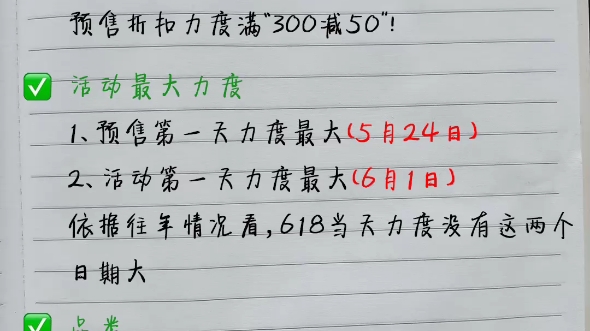 预售折扣力度满"300减50"!
活动最大力度
1、预售第一天力度最大(5月24日)
2、活动第一天力度最大(6月1日)
依据往年情况看,618当天力度没有这两个
日期大
品类